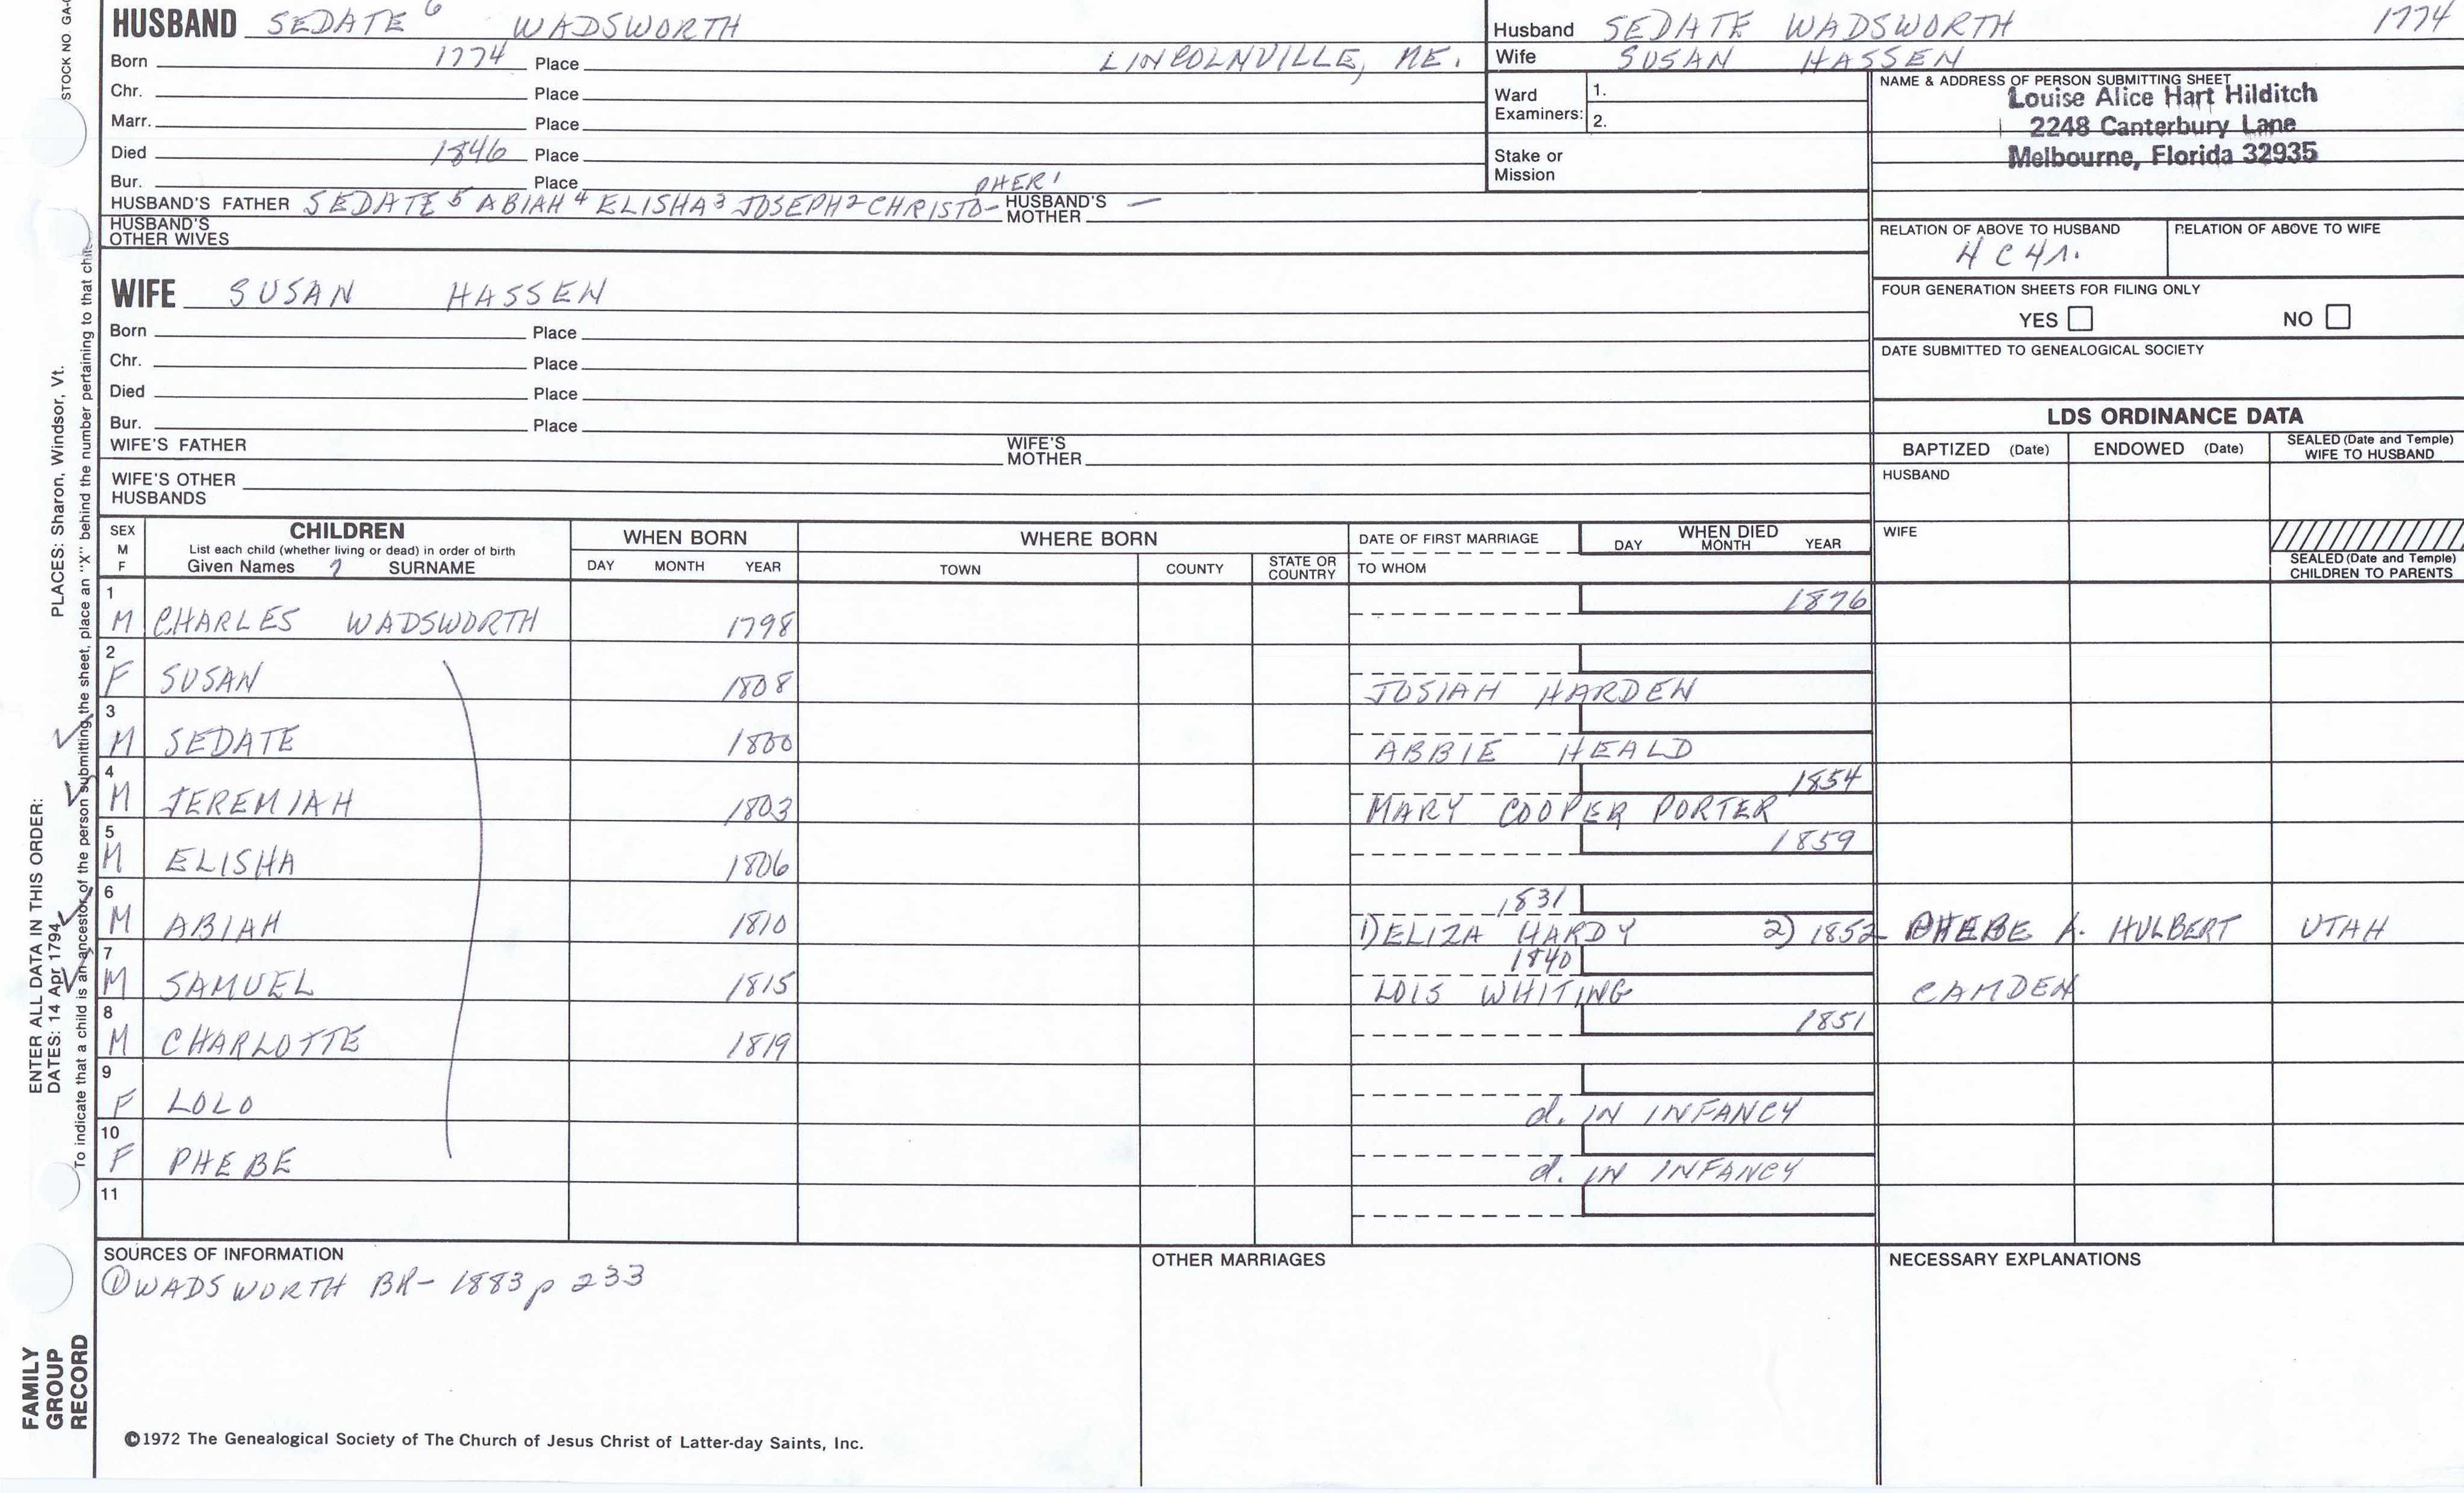 STOCK NO GA-
HUSBAND SEDATE 6 WADSWORTH
Born 1774 Place LINCOLNVILLE, ME.
Chr. Place
Marr. Place
Died 1846 Place
Bur. Place
PHER 1
HUSBAND'S FATHER SEDATE 5 ABIAH 4 ELISHA 3 JOSEPH 2 CHRISTO- HUSBAND'S MOTHER —
HUSBAND'S OTHER WIVES
WIFE SUSAN HASSEN
Born Place
Chr. Place
Died Place
Bur. Place
WIFE'S FATHER WIFE'S MOTHER
WIFE'S OTHER HUSBANDS
Husband SEDATE WADSWORTH 1774
Wife SUSAN HASSEN
Ward Examiners: 1.
2.
Stake or Mission
NAME & ADDRESS OF PERSON SUBMITTING SHEET
Louise Alice Hart Hilditch
2248 Canterbury Lane
Melbourne, Florida 32935
RELATION OF ABOVE TO HUSBAND RELATION OF ABOVE TO WIFE
4C4r.
FOUR GENERATION SHEETS FOR FILING ONLY
YES NO
DATE SUBMITTED TO GENEALOGICAL SOCIETY
LDS ORDINANCE DATA
BAPTIZED (Date) ENDOWED (Date) SEALED (Date and Temple) WIFE TO HUSBAND
HUSBAND
WIFE
SEALED (Date and Temple) CHILDREN TO PARENTS
SEX M F CHILDREN WHEN BORN WHERE BORN DATE OF FIRST MARRIAGE WHEN DIED
List each child (whether living or dead) in order of birth
Given Names 7 SURNAME DAY MONTH YEAR TOWN COUNTY STATE OR COUNTRY TO WHOM DAY MONTH YEAR
1 M CHARLES WADSWORTH 1798 1876
2 F SUSAN 1808 JOSIAH HARDEN
3 M SEDATE 1800 ABBIE HEALD
4 M JEREMIAH 1803 1854 MARY COOPER PORTER
5 M ELISHA 1806 1859
6 M ABIAH 1810 1831 1) ELIZA HARDY 2) 1852 PHEBE A. HULBERT UTAH
7 M SAMUEL 1815 1840 LOIS WHITING CAMDEN
8 M CHARLOTTE 1819 1851
9 F LOLO d. IN INFANCY
10 F PHEBE d. IN INFANCY
11
SOURCES OF INFORMATION
① WADSWORTH BK- 1883 p 233
OTHER MARRIAGES
NECESSARY EXPLANATIONS
©1972 The Genealogical Society of The Church of Jesus Christ of Latter-day Saints, Inc.
FAMILY GROUP RECORD
ENTER ALL DATA IN THIS ORDER:
DATES: 14 Apr 1794 PLACES: Sharon, Windsor, Vt.
To indicate that a child is an ancestor of the person submitting the sheet, place an "X" behind the number pertaining to that child